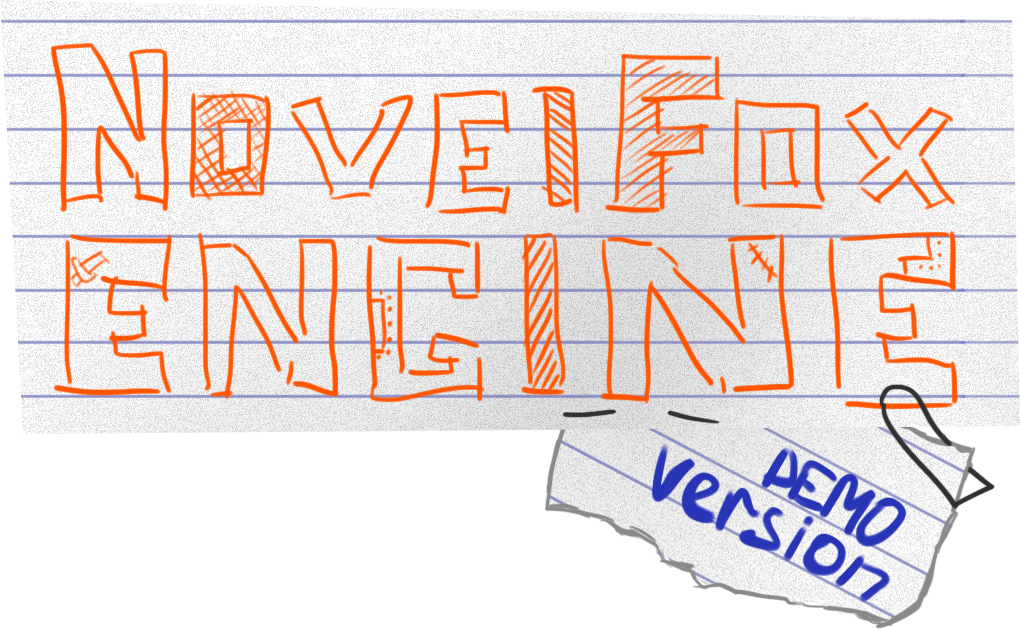 NovelFox
ENGINE
DEMO
version